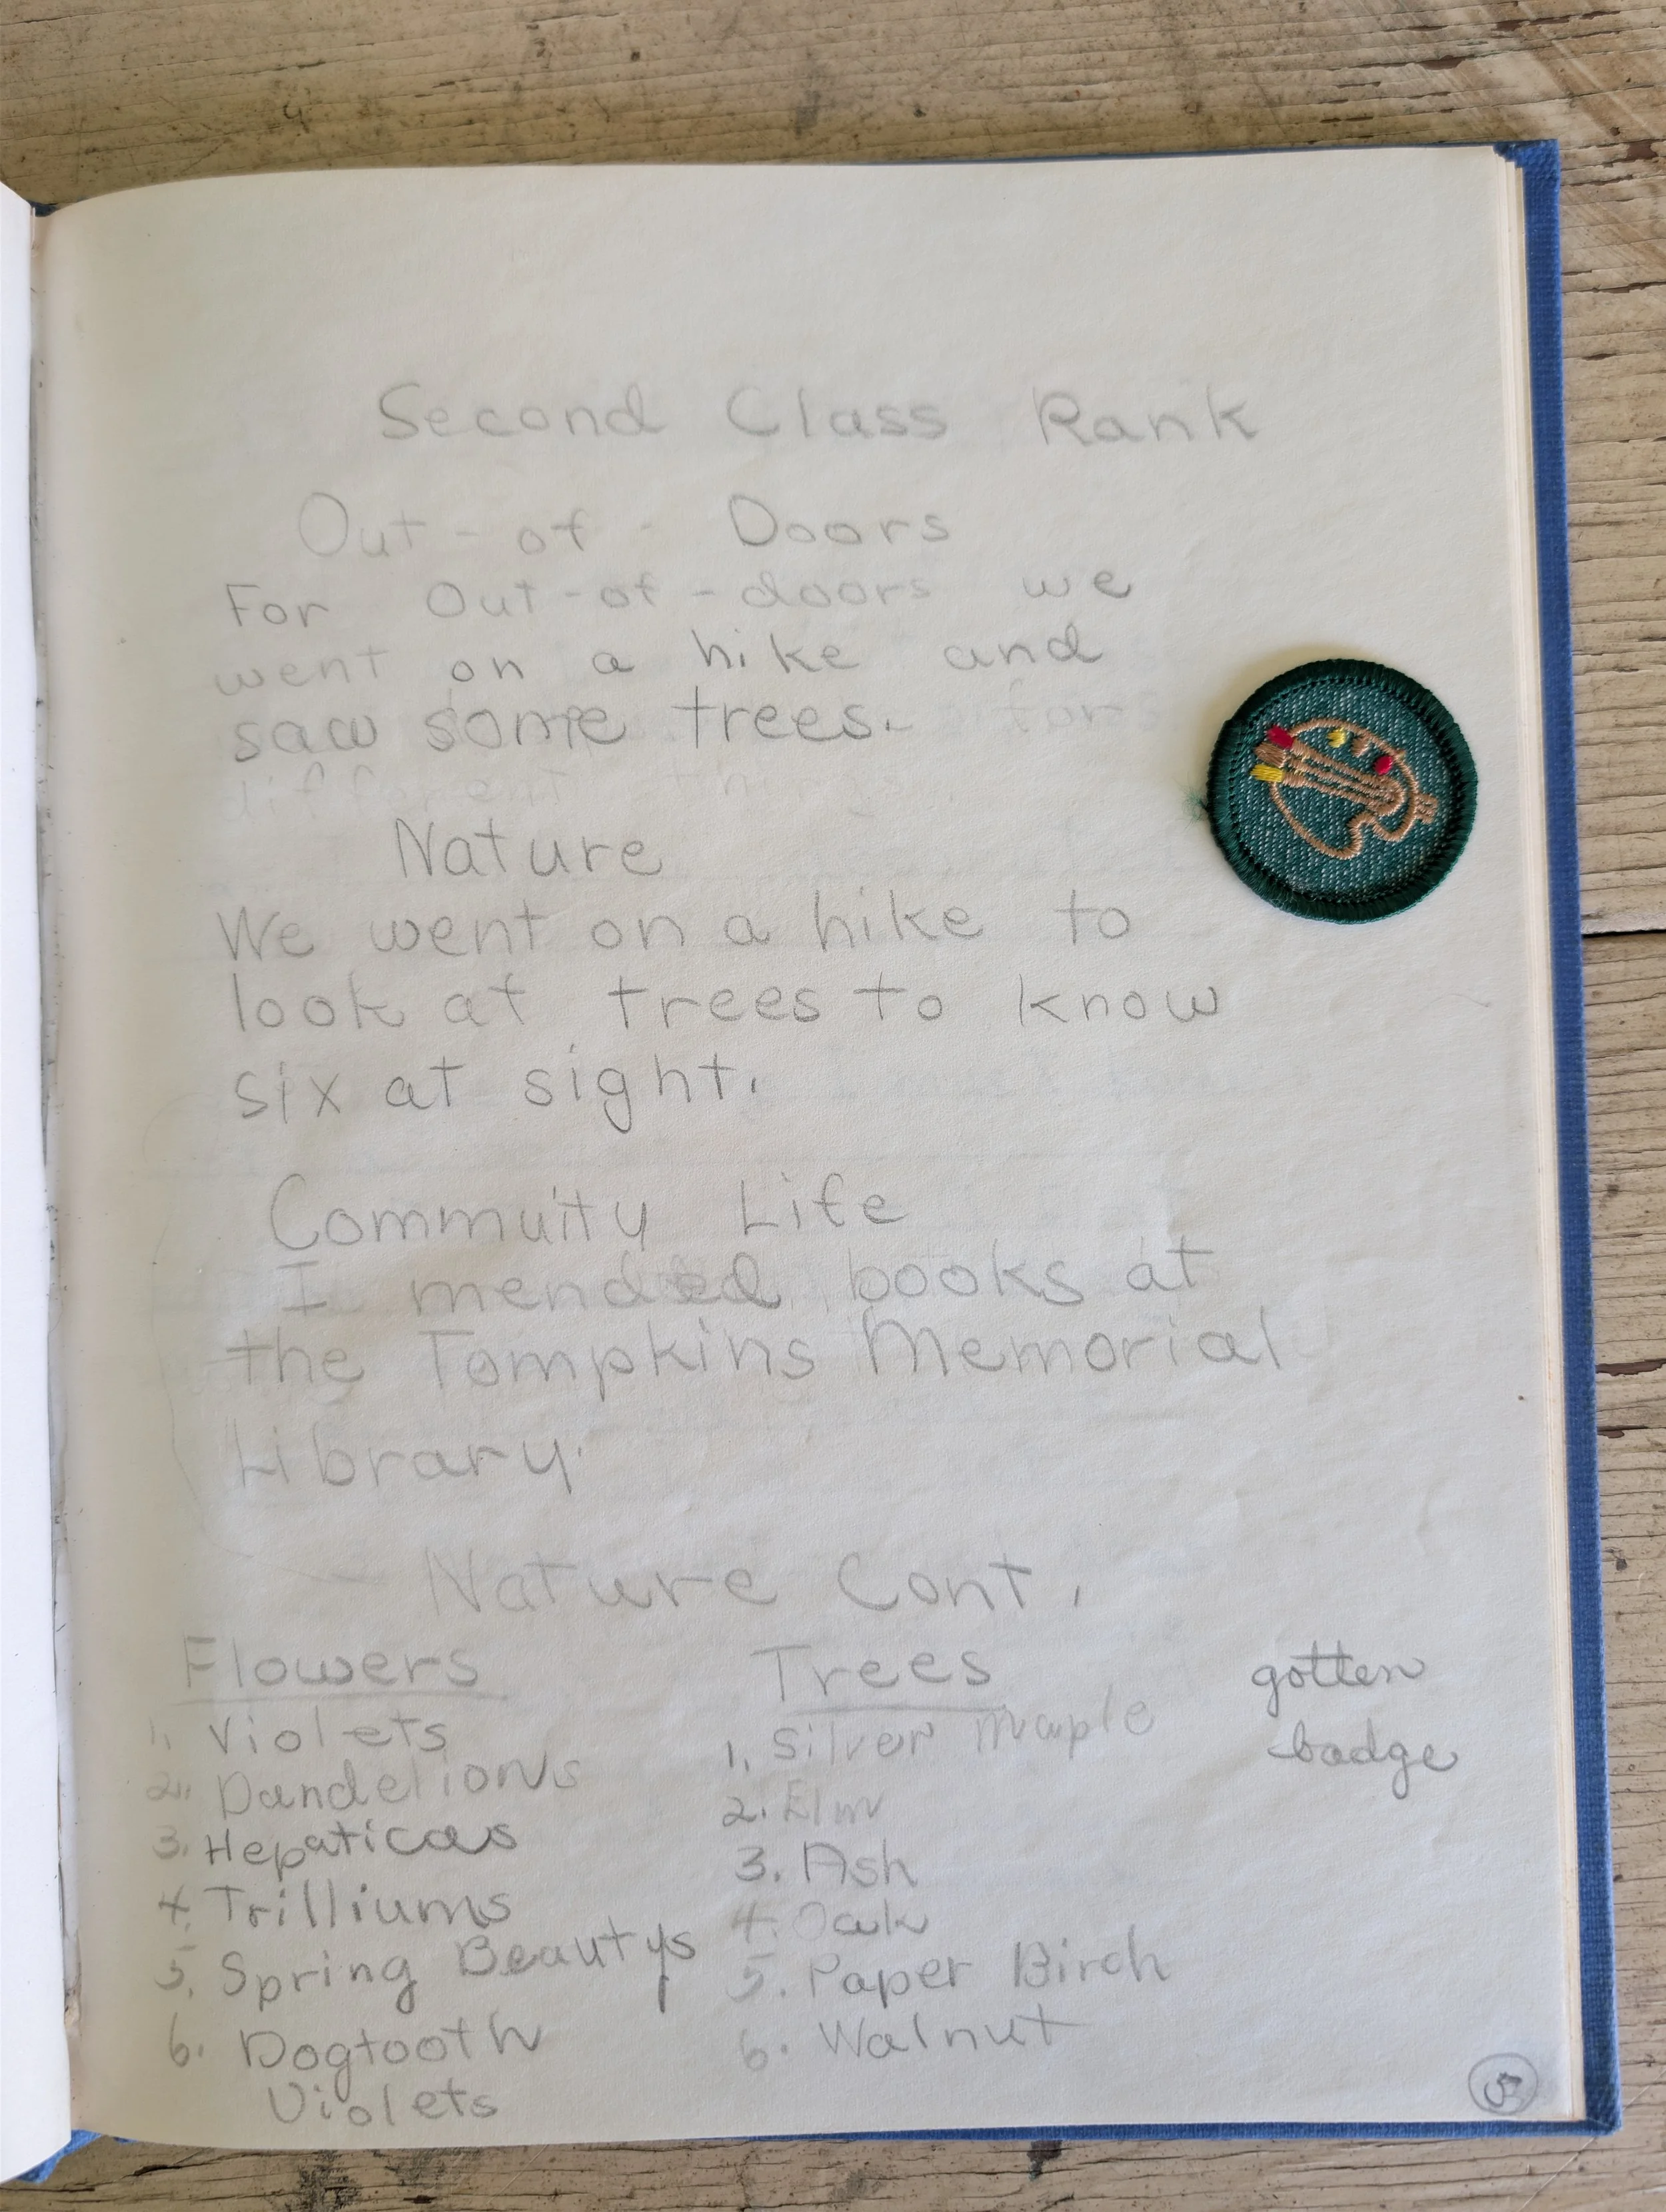 Second Class Rank
Out-of-Doors
For Out-of-doors we
went on a hike and
saw some trees. for
different things.
Nature
We went on a hike to
look at trees to know
six at sight.
Commuity Life
I mended books at
the Tompkins Memorial
Library.
Nature Cont.
Flowers
1. Violets
2. Dandelions
3. Hepaticas
4. Trilliums
5. Spring Beautys
6. Dogtooth
Violets
Trees
1. Silver maple
2. Elm
3. Ash
4. Oak
5. Paper Birch
6. Walnut
gotten
badge